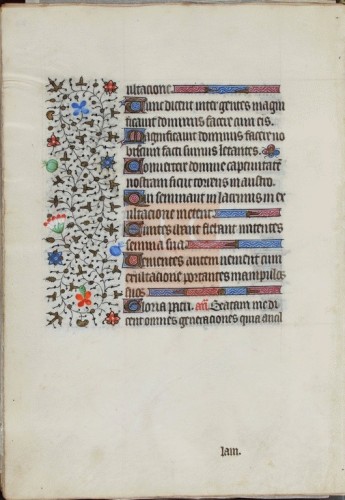 ultacione.
Tunc dicent inter gentes magni
ficauit dominus facere cum eis.
Magnificauit dominus facere no
biscum facti sumus letantes.
Conuertere domine captiuitatē
nostram sicut torrens in austro.
Qui seminant in lacrimis in ex
ultacione metent.
Euntes ibant et flebant mittentes
semina sua.
Uenientes autem uenient cum
exultacione portantes manipulos
suos.
Gloria patri. añ. Beatam me di
cent omnes generaciones quia ancil
lam.